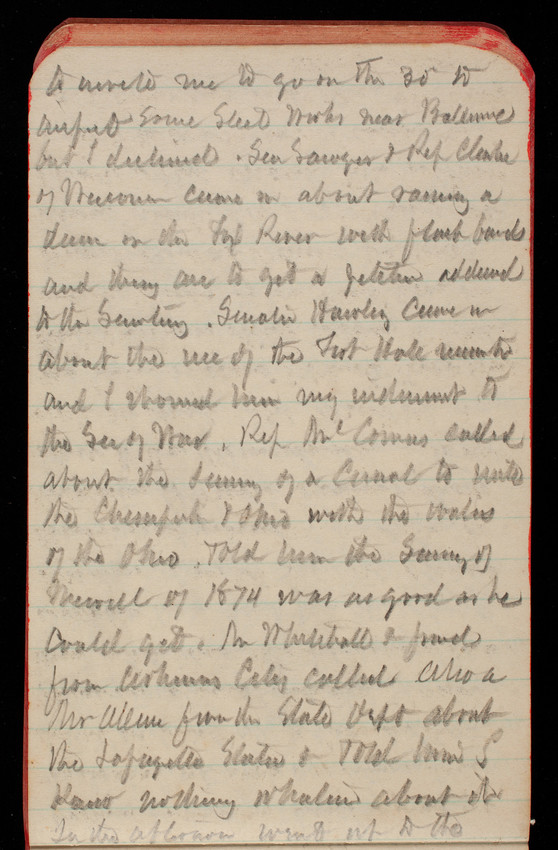 to invite me to go on the 30th to
inspect Some Steel Works near Baltimore
but I declined. Sen Sawyer & Rep Clarke
of Wisconsin came in about raising a
dam on the Fox River with flash boards
and they are to get a petition addressed
to the Secretary. Senator Hawley came in
about the use of the Fort Hale
and I showed him my indorsement to
the Sec of War. Rep McComas called
about the Survey of a Canal to unite
the Chesapeake & Ohio with the waters
of the Ohio. Told him the Survey of
Merrill of 1874 was as good as he
could get. Mr Whitehall & friend
from Arkansas City called Also a
Mr Allen from the State Dept about
the Lafayette Statue & Told him I
Know nothing whatever about it
In the afternoon went out to the